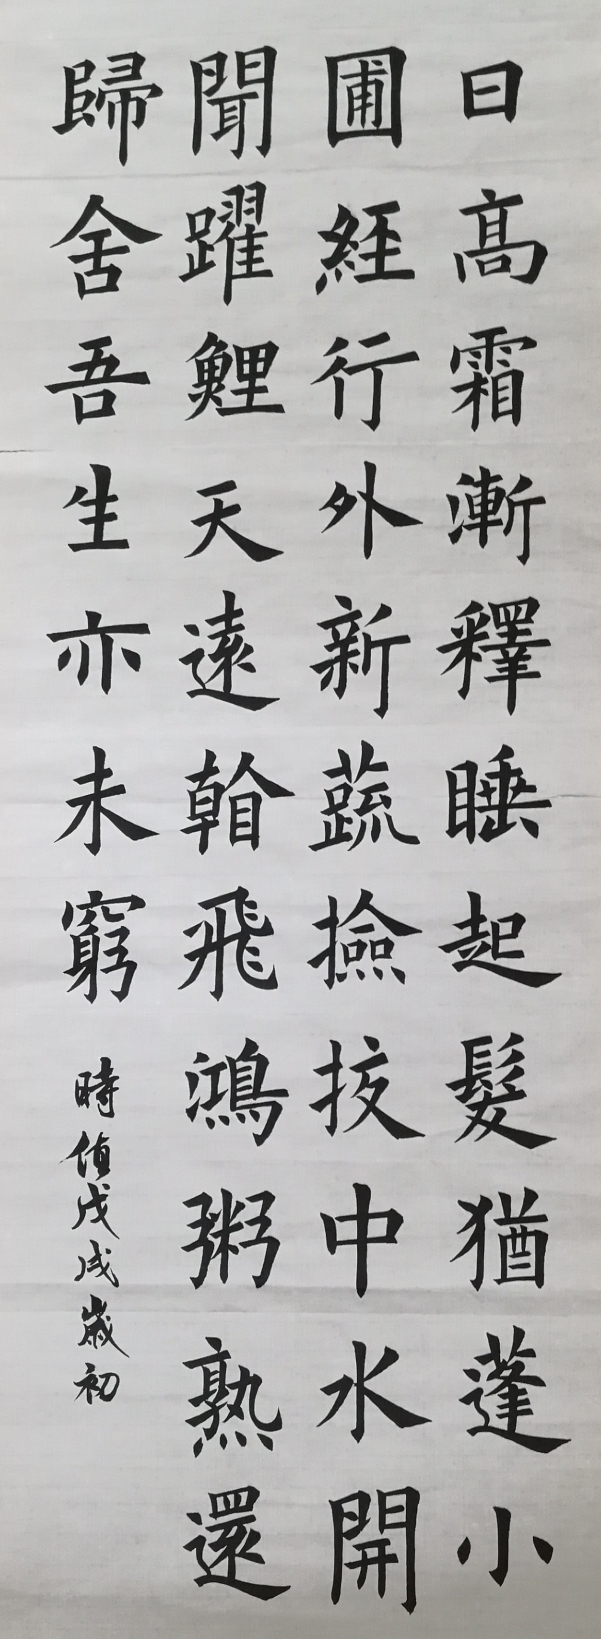 日高霜漸釋睡起髮猶蓬小
圃經行外新蔬撿拔中水開
聞躍鯉天遠睂飛鴻粥熟還
歸舍吾生亦未窮
時值戊戌歲初